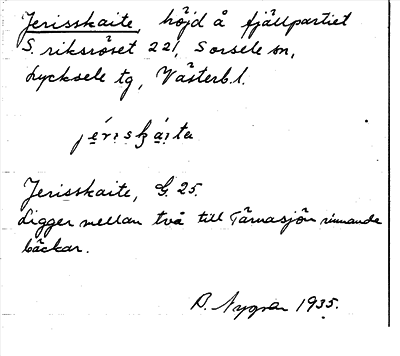 Jerisskaite, höjd å fjällpartiet
S. riksröset 221, Sorsele sn,
Lycksele tg, Västerb. l.
Jerisskaite, G. 25.
Ligger mellan två till Tärnasjön rinnande
bäckar.
D. Nygren 1935.